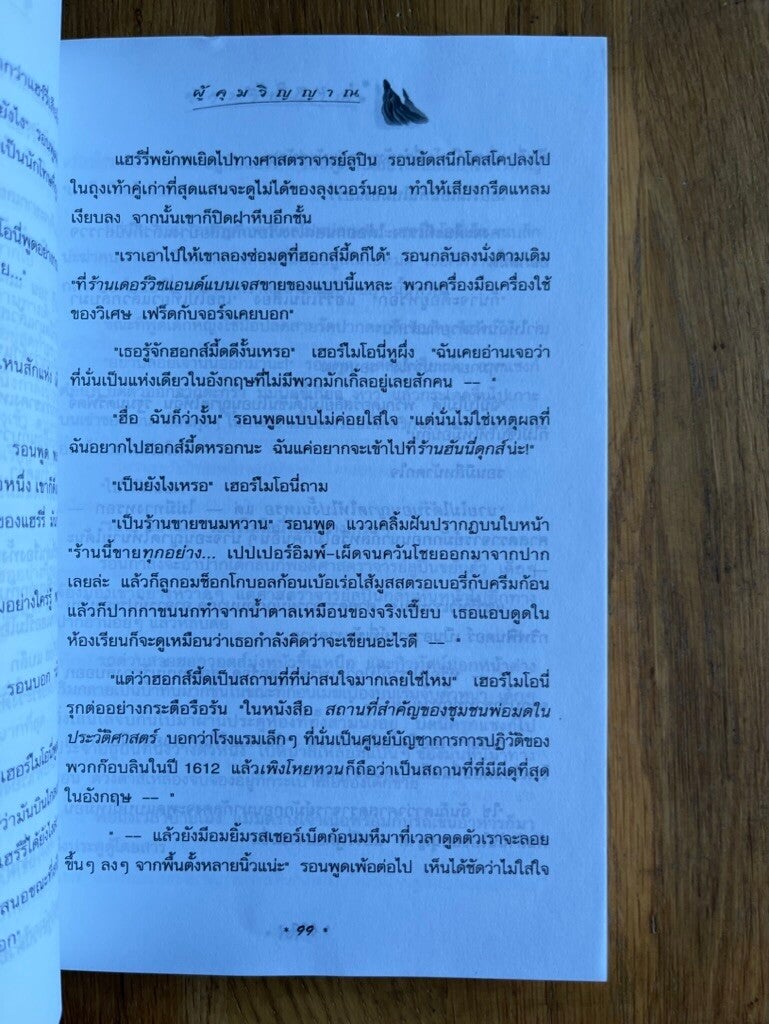 ผู้คุมวิญญาณ
แฮร์รี่พยักพเยิดไปทางศาสตราจารย์ลูปิน รอนยัดสนีกโคสโคปลงไป
ในถุงเท้าคู่เก่าที่สุดแสนจะดูไม่ได้ของลุงเวอร์นอน ทำให้เสียงกรีดแหลม
เงียบลง จากนั้นเขาก็ปิดฝาหีบอีกชั้น
"เราเอาไปให้เขาลองซ่อมดูที่ฮอกส์มี้ดก็ได้" รอนกลับลงนั่งตามเดิม
"ที่ร้านเดอร์วิชแอนด์แบนเจสขายของแบบนี้แหละ พวกเครื่องมือเครื่องใช้
ของวิเศษ เฟร็ดกับจอร์จเคยบอก"
"เธอรู้จักฮอกส์มี้ดดีงั้นเหรอ" เฮอร์ไมโอนี่หูผึ่ง "ฉันเคยอ่านเจอว่า
ที่นั่นเป็นแห่งเดียวในอังกฤษที่ไม่มีพวกมักเกิ้ลอยู่เลยสักคน -- "
"ฮื่อ ฉันก็ว่างั้น" รอนพูดแบบไม่ค่อยใส่ใจ "แต่นั่นไม่ใช่เหตุผลที่
ฉันอยากไปฮอกส์มี้ดหรอกนะ ฉันแค่อยากจะเข้าไปที่ร้านฮันนี่ดุกส์น่ะ!"
"เป็นยังไงเหรอ" เฮอร์ไมโอนี่ถาม
"เป็นร้านขายขนมหวาน" รอนพูด แววเคลิ้มฝันปรากฏบนใบหน้า
"ร้านนี้ขายทุกอย่าง... เปปเปอร์อิมพ์-เผ็ดจนควันโขยงออกมาจากปาก
เลยล่ะ แล้วก็ลูกอมช็อกโกบอลก้อนเบ้อเร่อไส้มูสสตรอเบอรี่กับครีมก้อน
แล้วก็ปากกาขนนกทำจากน้ำตาลเหมือนของจริงเปี๊ยบ เธอแอบดูดใน
ห้องเรียนก็จะดูเหมือนว่าเธอกำลังคิดว่าจะเขียนอะไรดี -- "
"แต่ว่าฮอกส์มี้ดเป็นสถานที่ที่น่าสนใจมากเลยใช่ไหม" เฮอร์ไมโอนี่
รุกต่ออย่างกระตือรือร้น "ในหนังสือ สถานที่สำคัญของชุมชนพ่อมดใน
ประวัติศาสตร์ บอกว่าโรงแรมเล็กๆ ที่นั่นเป็นศูนย์บัญชาการการปฏิวัติของ
พวกก๊อบลินในปี 1612 แล้วเพิงโหยหวนก็ถือว่าเป็นสถานที่ที่มีผีดุที่สุด
ในอังกฤษ -- "
" -- แล้วยังมีอมยิ้มรสเชอร์เบ็ตก้อนมหึมาที่เวลาดูดตัวเราจะลอย
ขึ้นๆ ลงๆ จากพื้นตั้งหลายนิ้วแน่ะ" รอนพูดเพ้อต่อไป เห็นได้ชัดว่าไม่ใส่ใจ
* 99 *